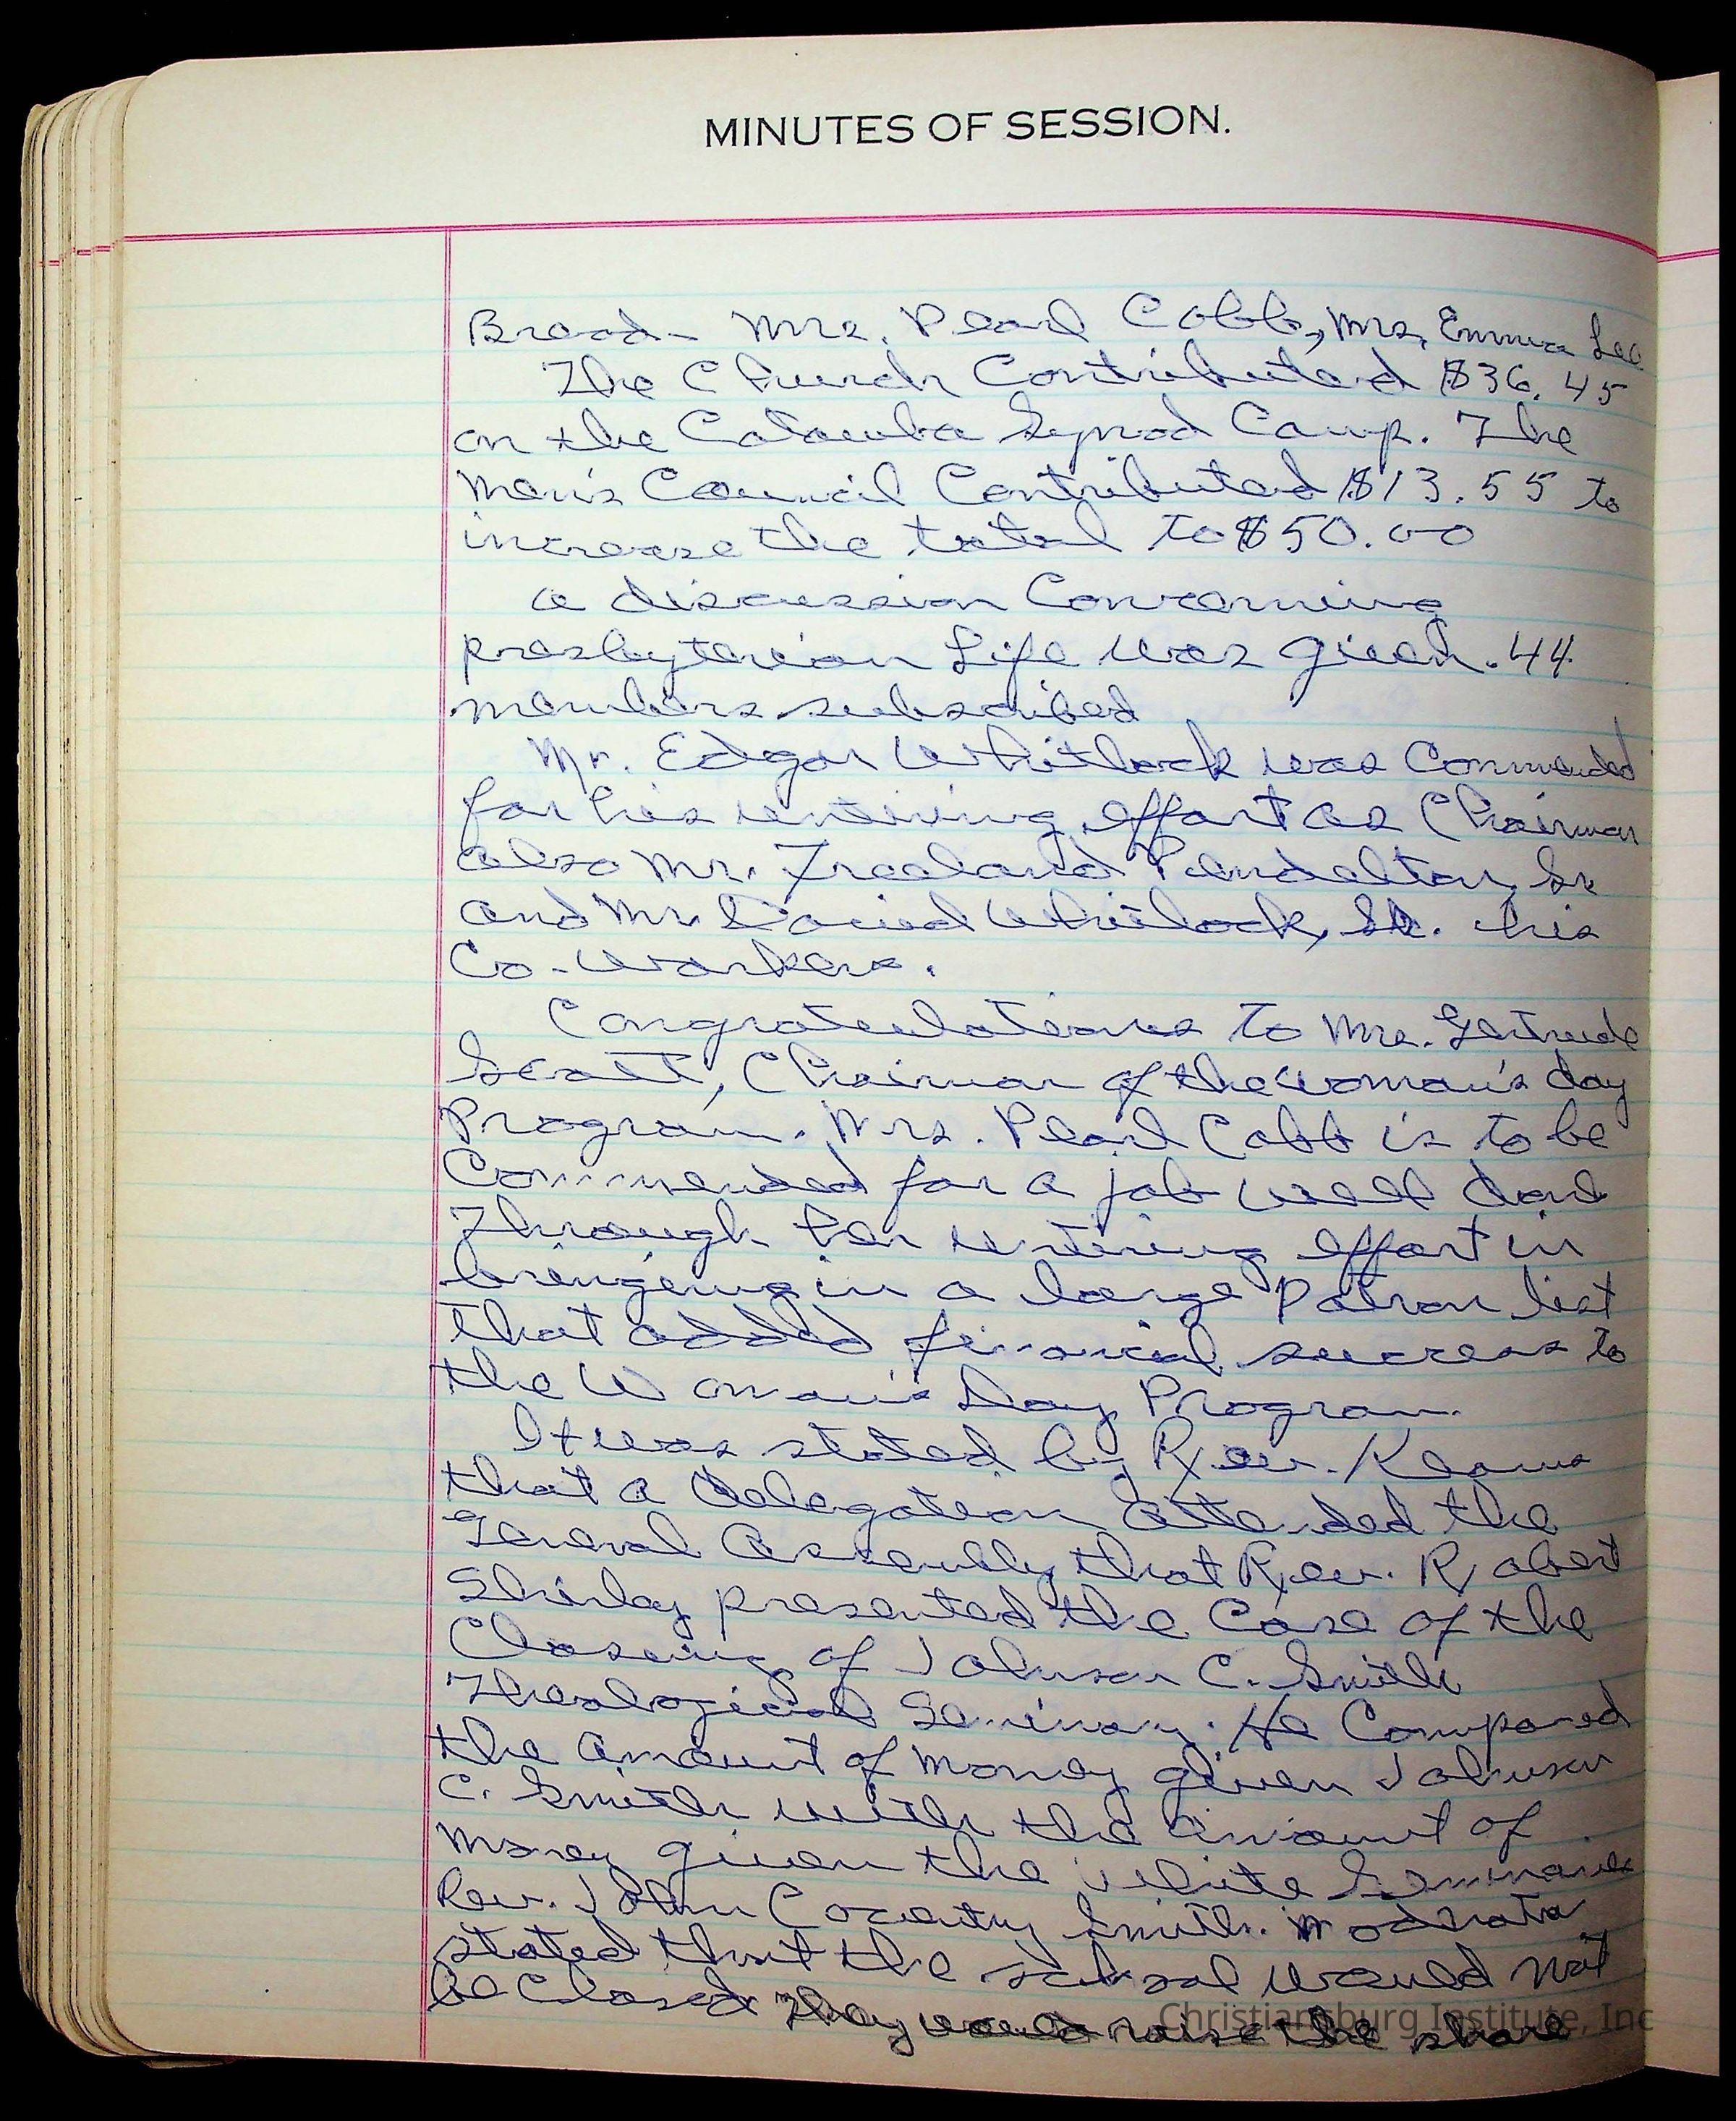 MINUTES OF SESSION.
Bread - Mrs. Pearl Cobb, Mrs. Emma Lee
The Church Contributed $36.45
on the Catawba Synod Camp. The
Men's Council Contributed $13.55 to
increase the total to $50.00
a discussion Concerning
presbyterian Life was given. 44
members subscribed
Mr. Edgar Whitlock was Commended
for his untiring effort as Chairman
also Mr. Freeland Pendelton, Sr
and Mr. David Whitlock, Sr. his
Co-workers.
Congratulations to Mrs. Gertrude
Scott, Chairman of the Woman's day
Program. Mrs. Pearl Cobb is to be
Commended for a job well done
Through her untiring effort in
bringing in a large Patron list
that added financial success to
the Woman's Day Program.
It was stated by Rev. Kearns
that a delegation attended the
General Assembly that Rev. Robert
Shirley presented the Case of the
Closing of Johnson C. Smith
Theological Seminary. He Compared
the amount of money given Johnson
C. Smith with the amount of
money given the white Seminaries
Rev. John Coventry Smith. Moderator
stated that the school would not
be Closed They would raise the share
Christiansburg Institute, Inc